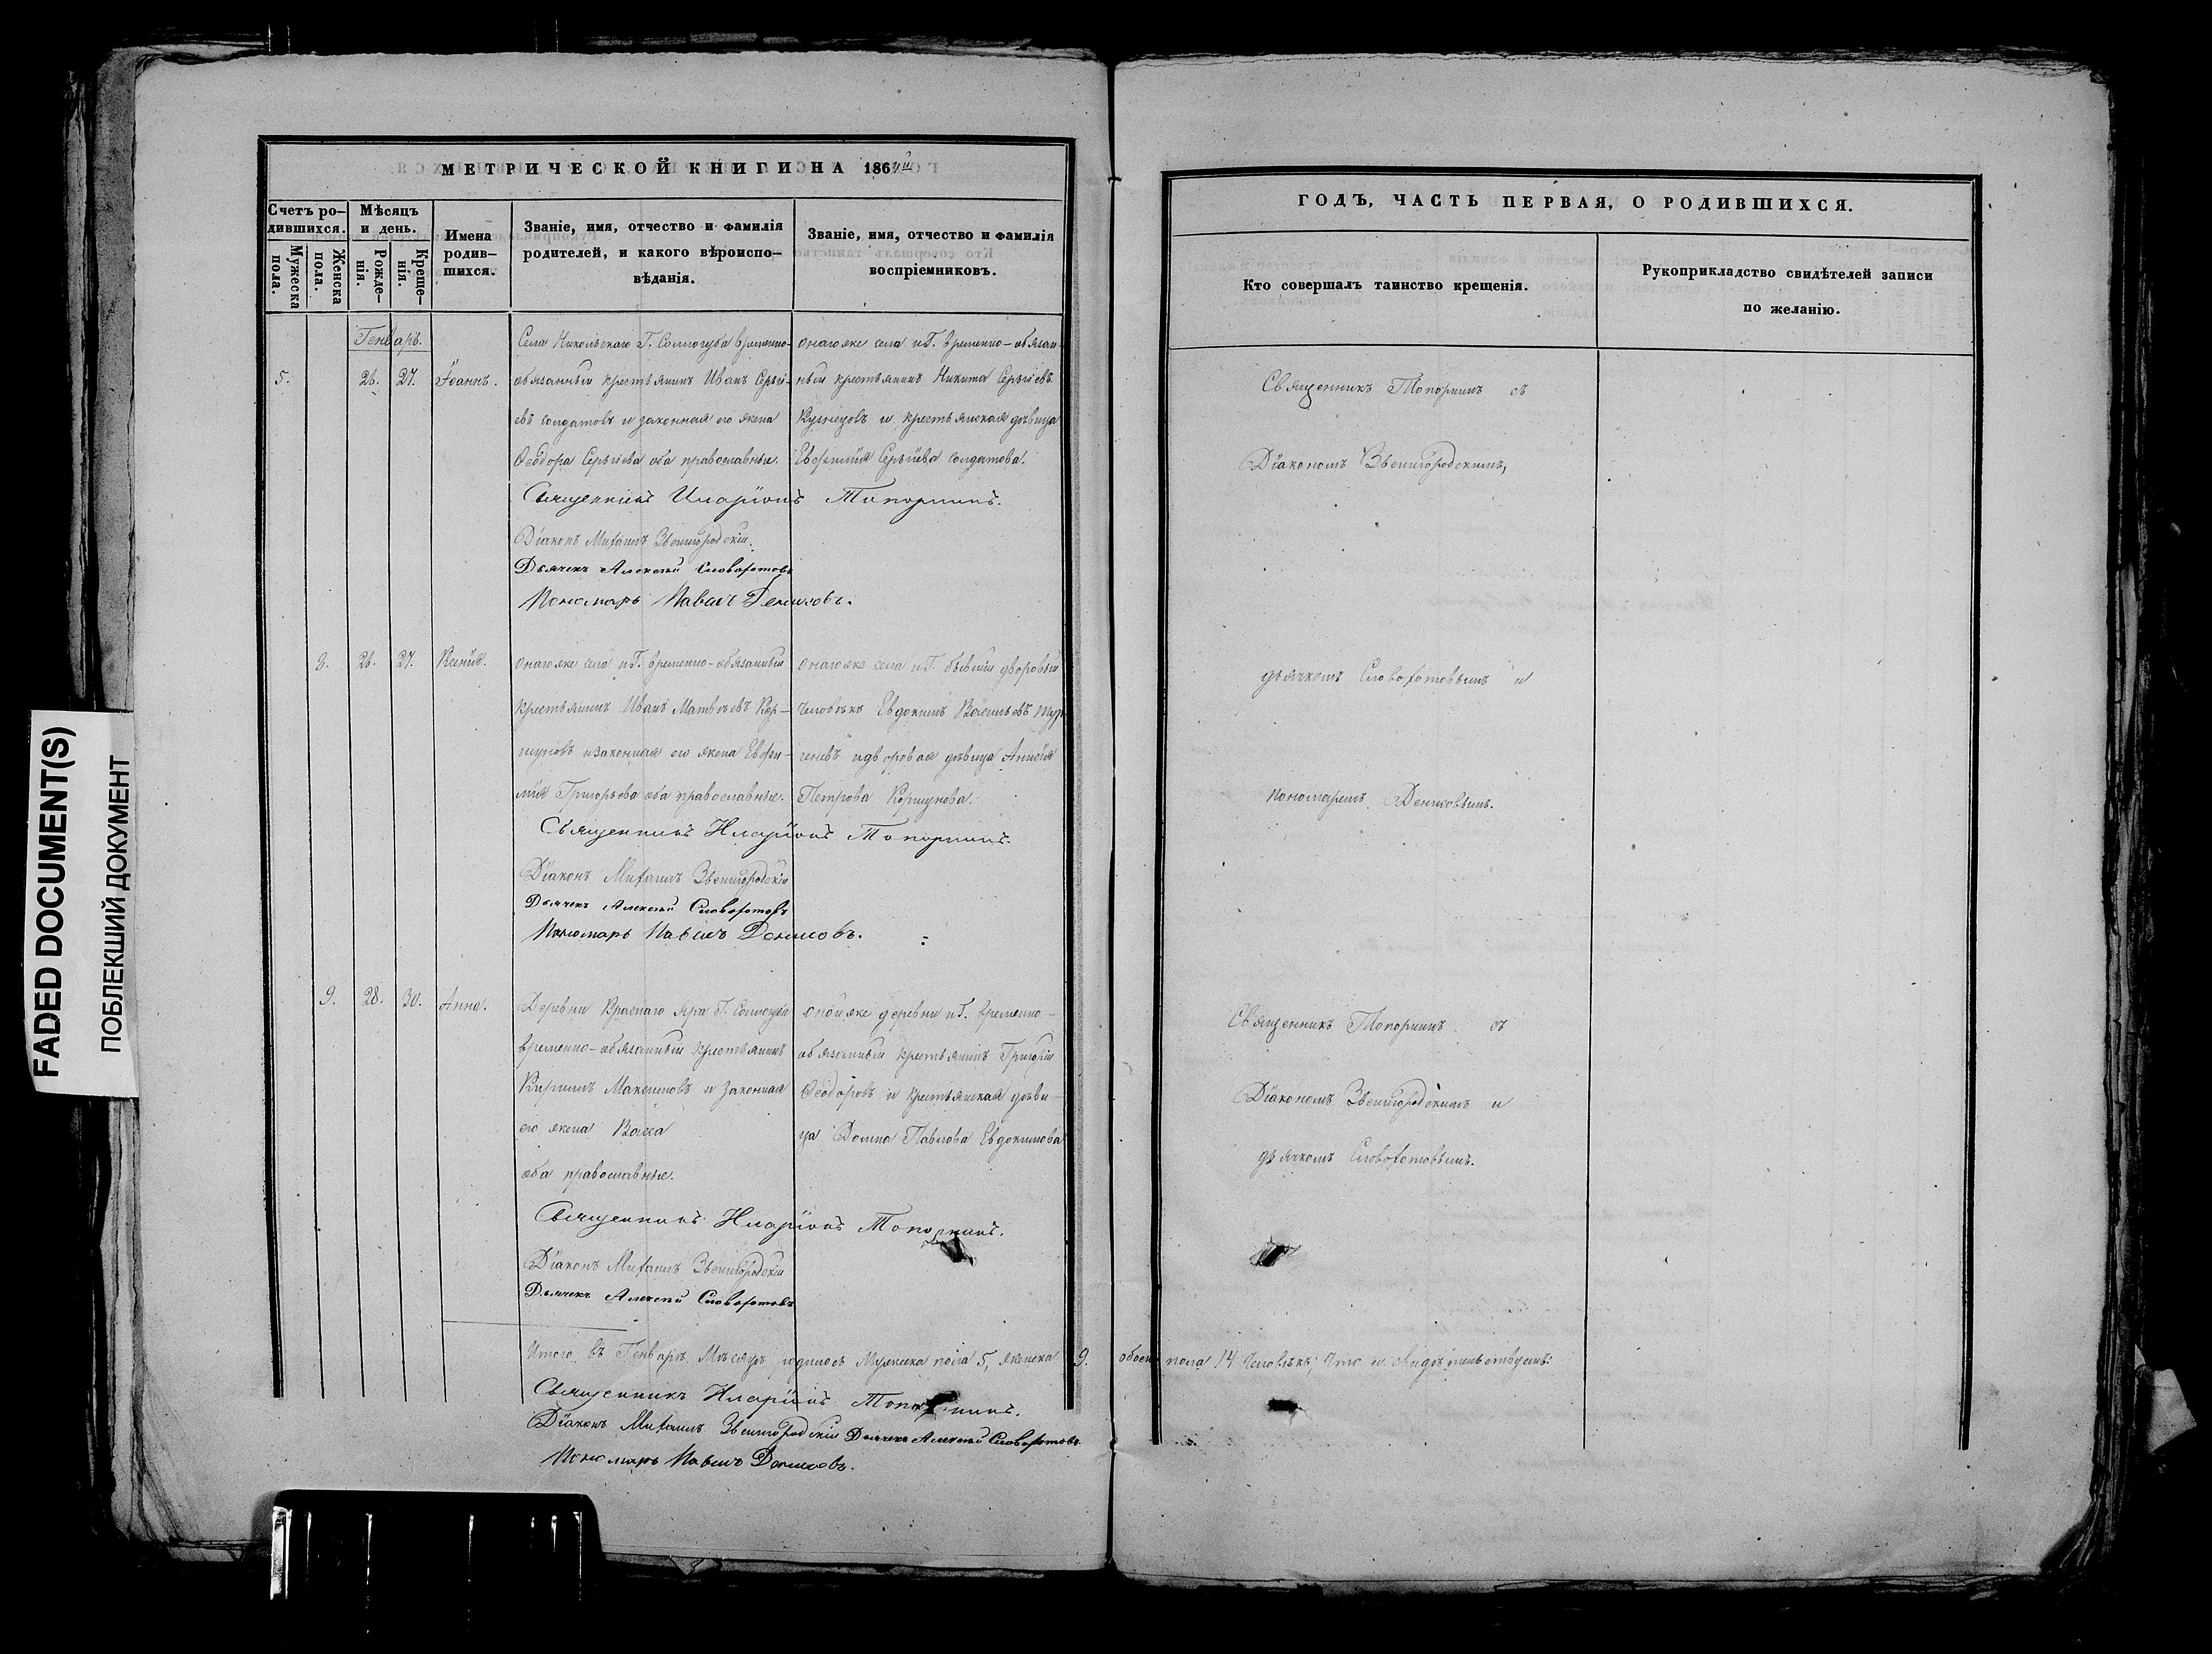 FADED DOCUMENT(S)
ПОБЛЕКШИЙ ДОКУМЕНТ
МЕТРИЧЕСКОЙ КНИГИ НА 1864й
Счетъ ро-
дившихся.
Мужеска
пола.
Женска
пола.
Мѣсяцъ
и день.
Рожде-
нія.
Креще-
нія.
Имена
родив-
шихся.
Званіе, имя, отчество и фамилія
родителей, и какого вѣроиспо-
вѣданія.
Званіе, имя, отчество и фамилія
воспріемниковъ.
Генварь.
5. 26. 27. Іоаннъ.
Села Никольскаго Г. Соллогуба временно-
обязанный крестьянинъ Иванъ Сергі-
евъ солдатовъ и законная его жена
Ѳеодора Сергіева оба православные.
онагоже села и Г. временно-обязан-
ный крестьянинъ Никита Сергіевъ
Кузнецовъ и крестьянская дѣвица
Евфимія Сергіева солдатова.
Священникъ Иларіонъ Топорнинъ.
Діаконъ Михаилъ Звенигородскій.
Дьячекъ Алексѣй Словохотовъ
Пономарь Павелъ Денисовъ.
8. 26. 27. Ксенія.
онагоже села и Г. временно-обязанный
крестьянинъ Иванъ Матвѣевъ Кор-
шуновъ и законная его жена Евфи-
мія Григорьева оба православные.
онагоже села и Г. бывшій дворовый
человѣкъ Евдокимъ Васильевъ
и дворовая дѣвица
Петрова Коршунова.
Священникъ Иларіонъ Топорнинъ.
Діаконъ Михаилъ Звенигородскій
Дьячекъ Алексѣй Словохотовъ
Пономарь Павелъ Денисовъ.
9. 28. 30. Анна.
Деревни Краснаго Яра Г. Соллогуба
временно-обязанный крестьянинъ
Кирилъ Максимовъ и законная
его жена Васса
оба православные.
оной же деревни и Г. временно-
обязанный крестьянинъ Григорій
Ѳеодоровъ и крестьянская дѣви-
ца Домна Павлова Евдокимова
Священникъ Иларіонъ Топорнинъ.
Діаконъ Михаилъ Звенигородскій
Дьячекъ Алексѣй Словохотовъ
Итого въ Генварѣ Мѣсяцѣ родилось Мужеска пола 5, женска 9. обоего пола 14 человѣкъ; что и свидѣтельствуемъ:
Священникъ Иларіонъ Топорнинъ.
Діаконъ Михаилъ Звенигородскій Дьячекъ Алексѣй Словохотовъ.
Пономарь Павелъ Денисовъ.
ГОДЪ, ЧАСТЬ ПЕРВАЯ, О РОДИВШИХСЯ.
Кто совершалъ таинство крещенія.
Рукоприкладство свидѣтелей записи
по желанію.
Священникъ Топорнинъ съ
Діакономъ Звенигородскимъ,
дьячкомъ Словохотовымъ и
пономаремъ Денисовымъ.
Священникъ Топорнинъ съ
Діакономъ Звенигородскимъ и
дьячкомъ Словохотовымъ.